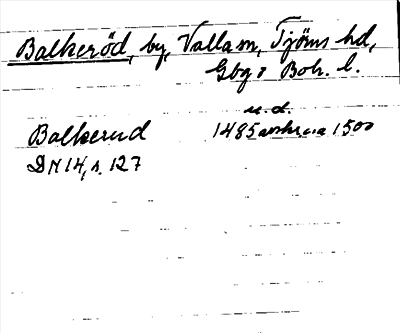 Balkeröd, by, Valla sn, Tjörns hd,
Gbg o Boh. l.
u. d.
Balkerud 1485 avskr ca 1500
DN 14, s. 127